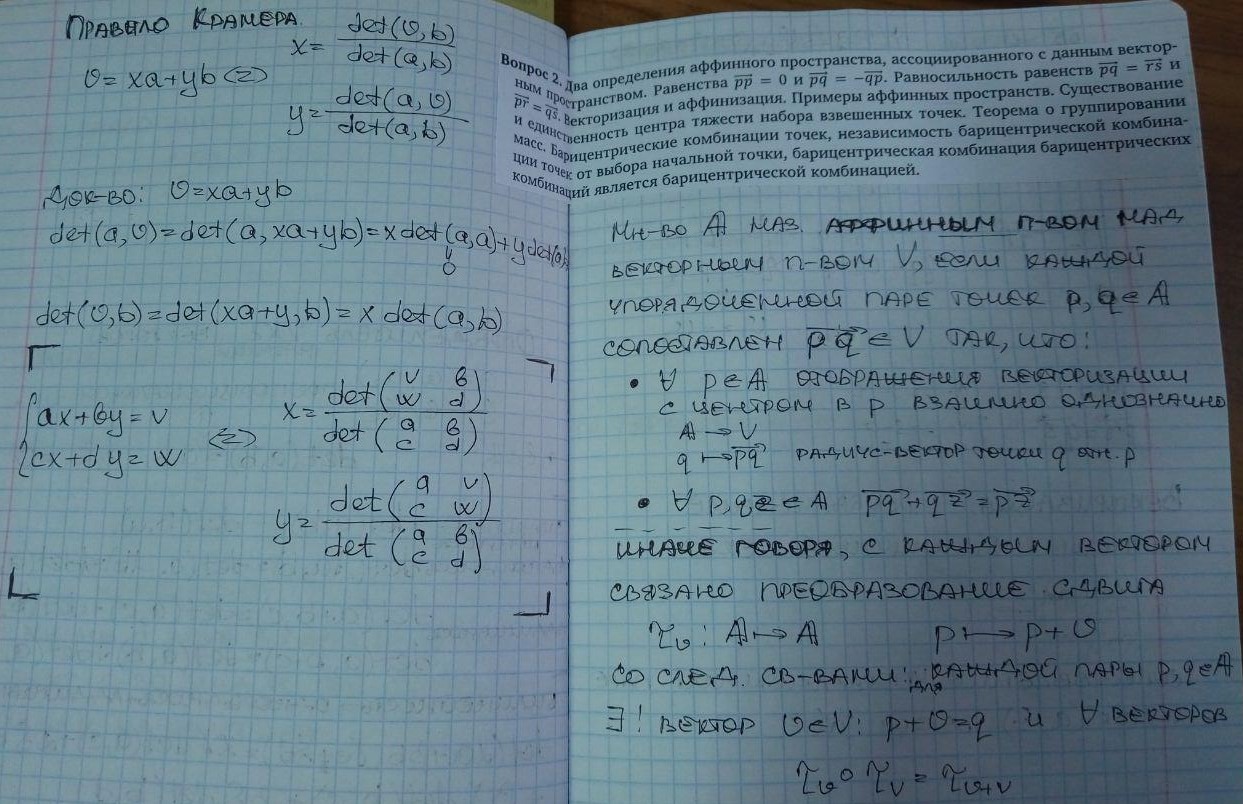 Правило Крамера
v = xa+yb <=> x = det(v,b) / det(a,b)
y = det(a,v) / det(a,b)
Док-во: v=xa+yb
det(a,v)=det(a,xa+yb)=x det(a,a)+y det(a,b)
0
det(v,b)=det(xa+y,b)= x det(a,b)
{ax+by=v
{cx+dy=w
<=>
x= det(v b; w d) / det(a b; c d)
y= det(a v; c w) / det(a b; c d)
Вопрос 2. Два определения аффинного пространства, ассоциированного с данным вектор-
ным пространством. Равенства pp = 0 и pq = −qp. Равносильность равенств pq = rs и
pr = qs. Векторизация и аффинизация. Примеры аффинных пространств. Существование
и единственность центра тяжести набора взвешенных точек. Теорема о группировании
масс. Барицентрические комбинации точек, независимость барицентрической комбина-
ции точек от выбора начальной точки, барицентрическая комбинация барицентрических
комбинаций является барицентрической комбинацией.
Мн-во 𝔸 наз. аффинным п-вом над
векторным п-вом V, если каждой
упорядоченной паре точек p, q ∈ 𝔸
сопоставлен pq ∈ V так, что:
• ∀ p∈𝔸 отображения векторизации
с центром в p взаимно однозначно
𝔸 → V
q ↦ pq радиус-вектор точки q отн. p
• ∀ p,q,z ∈ 𝔸 pq+qz=pz
Иначе говоря, с каждым вектором
связано преобразование сдвига
τ_v : 𝔸 ↦ 𝔸 p ↦ p+v
со след. св-вами: для каждой пары p,q∈𝔸
∃! вектор v∈V: p+v=q и ∀ векторов
τ_v∘τ_v = τ_v+v